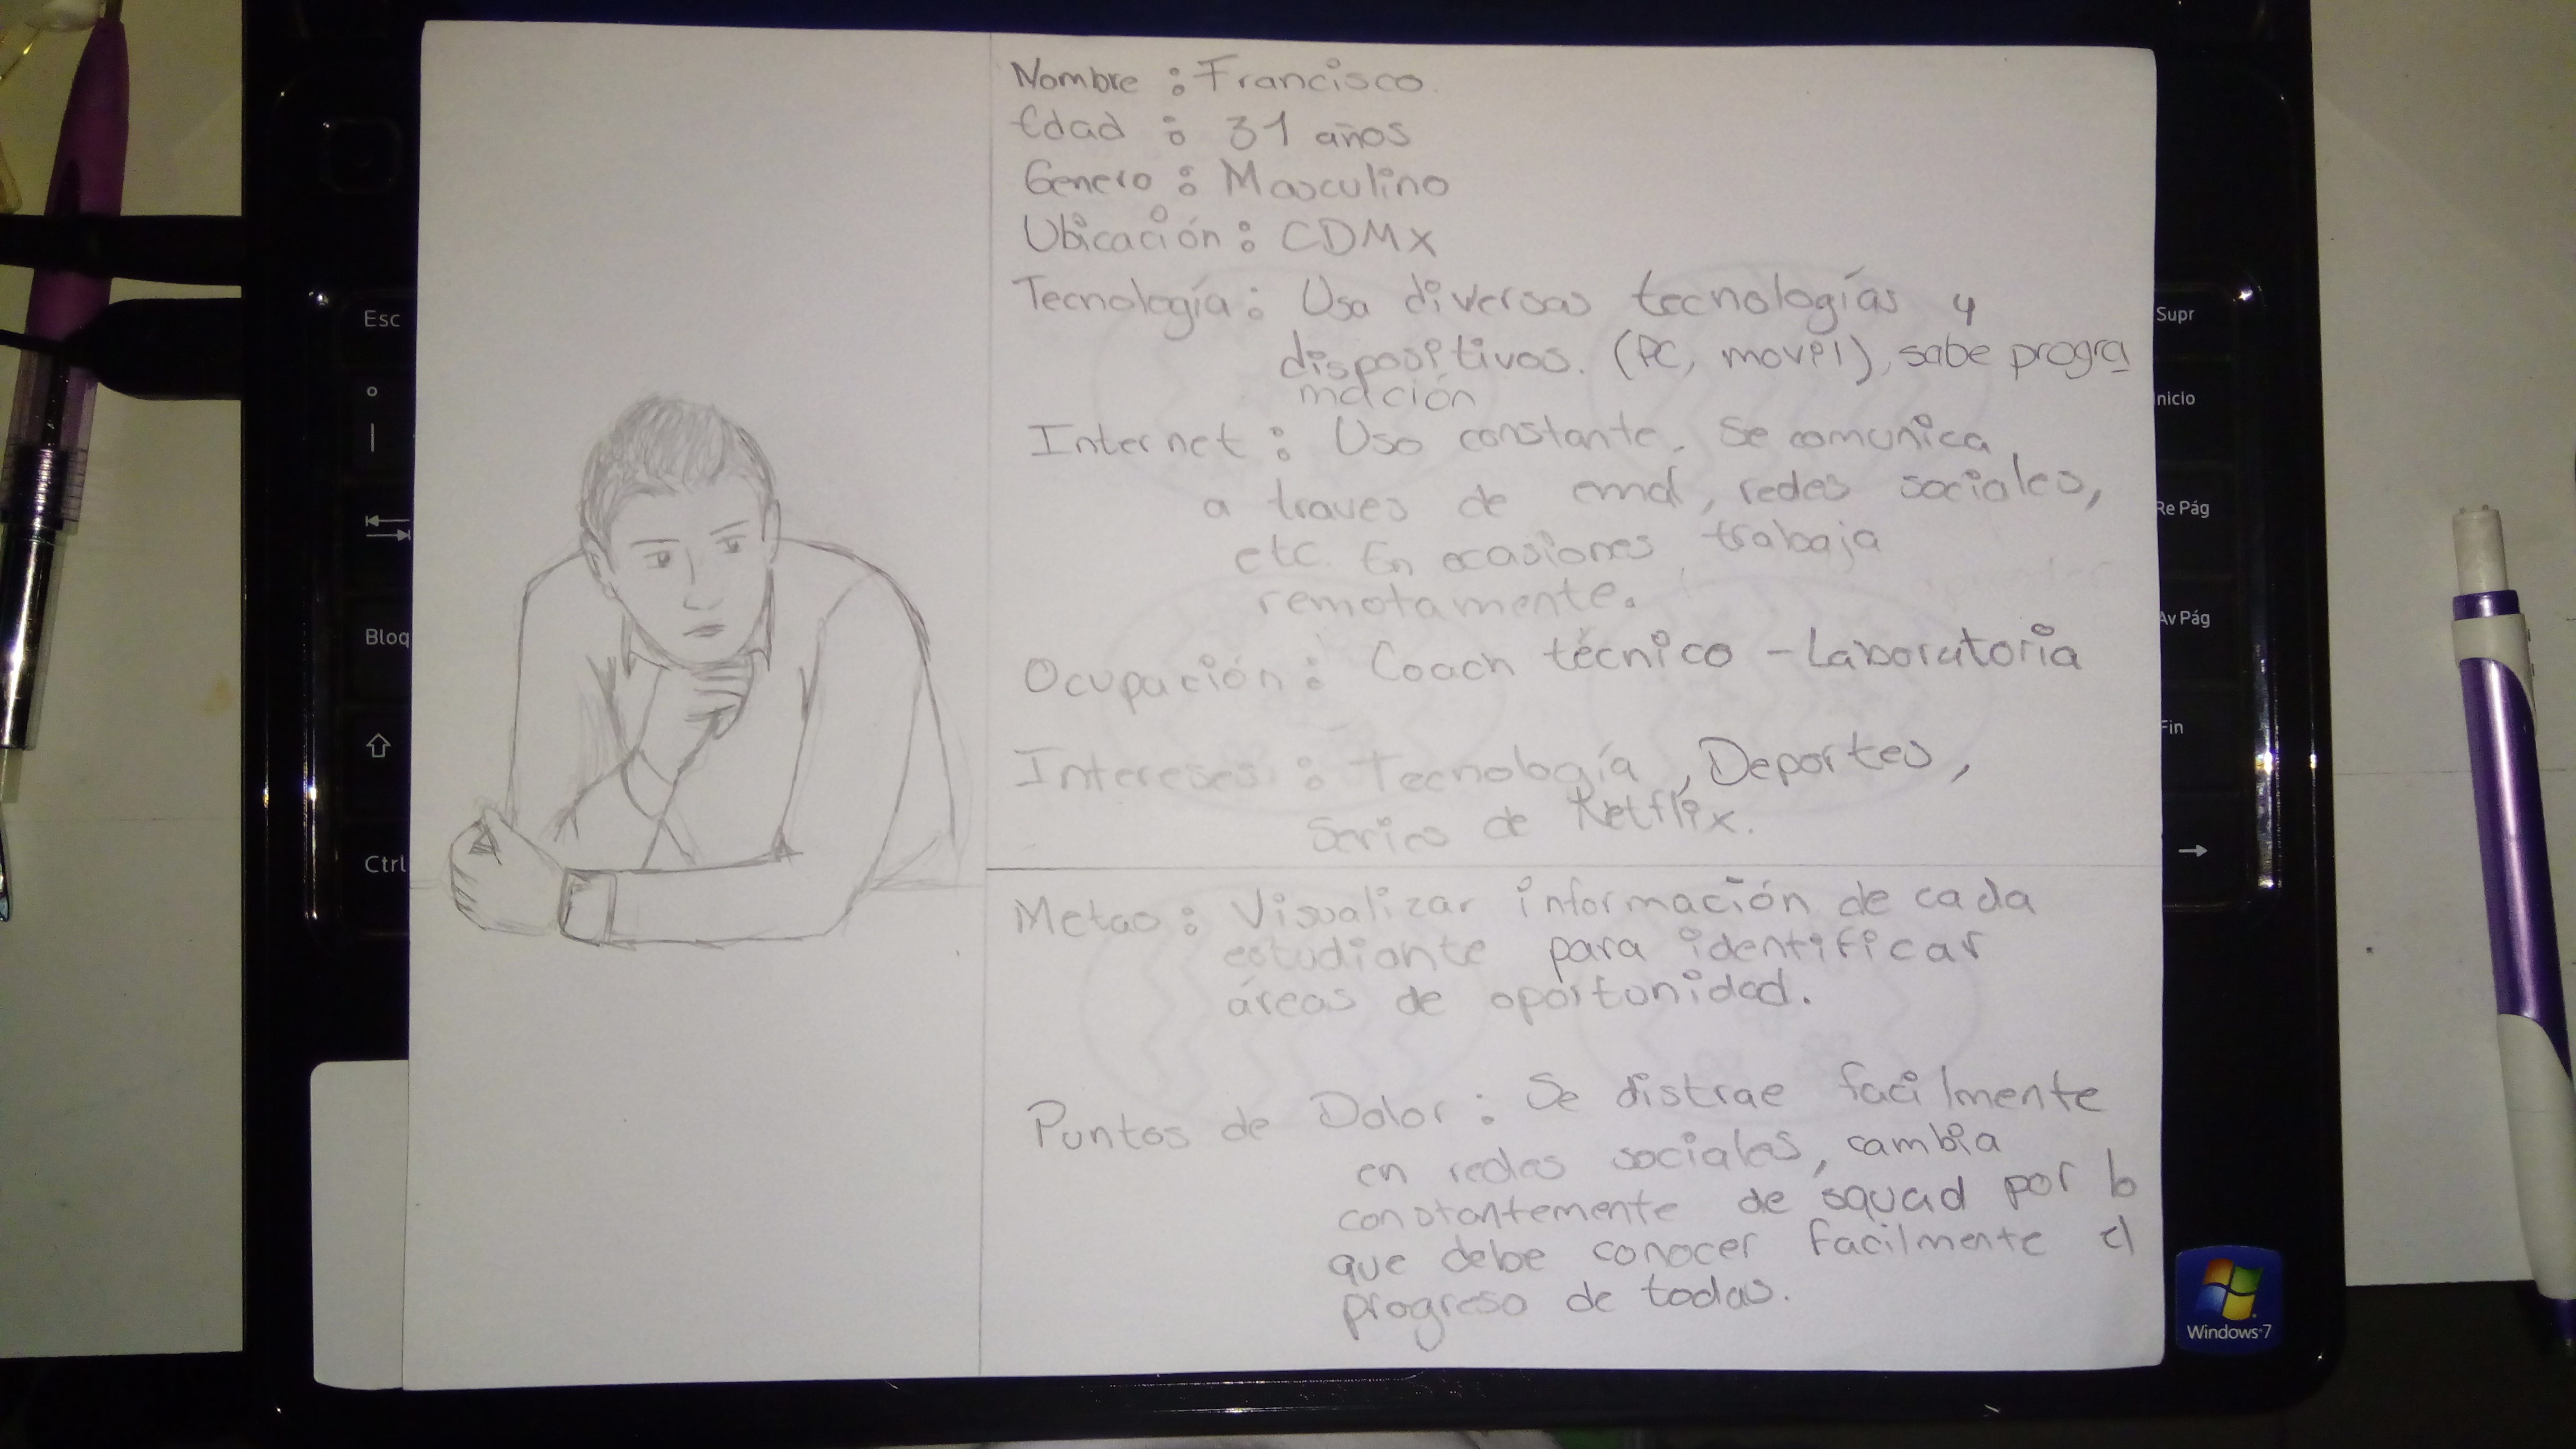 Nombre : Francisco.
Edad : 31 años
Genero : Masculino
Ubicación : CDMX
Tecnología : Usa diversas tecnologías y
dispositivos. (PC, movil), sabe progra
mación
Internet : Uso constante. Se comunica
a traves de email, redes sociales,
etc. En ocasiones trabaja
remotamente.
Ocupación : Coach técnico - Laboratoria
Intereses : Tecnología, Deportes,
Series de Netflix.
Metas : Visualizar información de cada
estudiante para identificar
áreas de oportunidad.
Puntos de Dolor : Se distrae facilmente
en redes sociales, cambia
constantemente de squad por lo
que debe conocer facilmente el
progreso de todas.
Esc
Bloq
Ctrl
Supr
Inicio
Re Pág
Av Pág
Fin
Windows 7